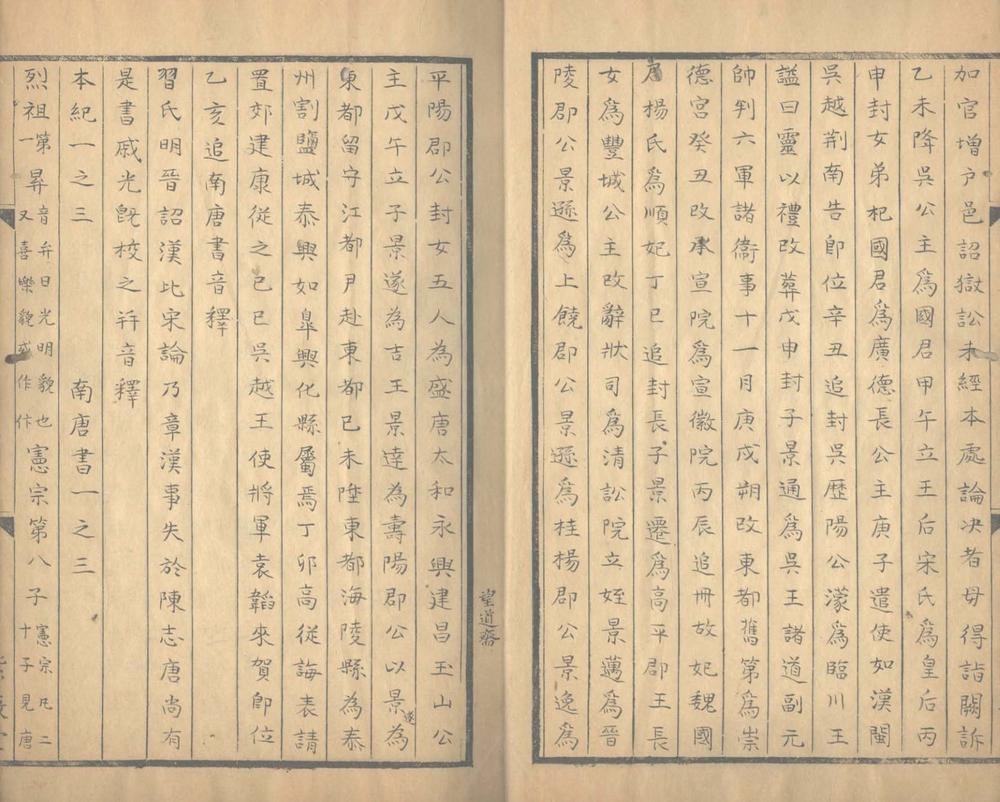 加官增户邑詔獄訟未經本處論决者毋得詣闕訴
乙未降吳公主爲國君甲午立王后宋氏爲皇后丙
申封女弟杞國君爲廣德長公主庚子遣使如漢閩
吳越荆南告即位辛丑追封吳歷陽公濛爲臨川王
謚曰靈以禮改葬戊申封子景通爲吳王諸道副元
帥判六軍諸衞事十一月庚戌朔改東都舊第爲崇
德宮癸丑改承宣院爲宣徽院丙辰追冊故妃魏國
君楊氏爲順妃丁巳追封長子景遷爲高平郡王長
女爲豐城公主改辭狀司爲清訟院立姪景邁爲晉
陵郡公景遜爲上饒郡公景遜爲桂楊郡公景逸爲
平陽郡公封女五人為盛唐太和永興建昌玉山公
主戊午立子景遂為吉王景達為壽陽郡公以景遂為
東都留守江都尹赴東都己未陞東都海陵縣為泰
州割鹽城泰興如臯興化縣屬焉丁卯高從誨表請
置郊建康從之己巳吳越王使將軍袁韜來賀即位
乙亥追南唐書音釋
習氏明晉詔漢比宋論乃章漢事失於陳志唐尚有
是書戚光旣校之并音釋
本紀一之三 南唐書一之三
烈祖第一昇音弁日光明貌也又喜樂貌或作忭憲宗第八子憲宗凡二十子見唐
望道齋